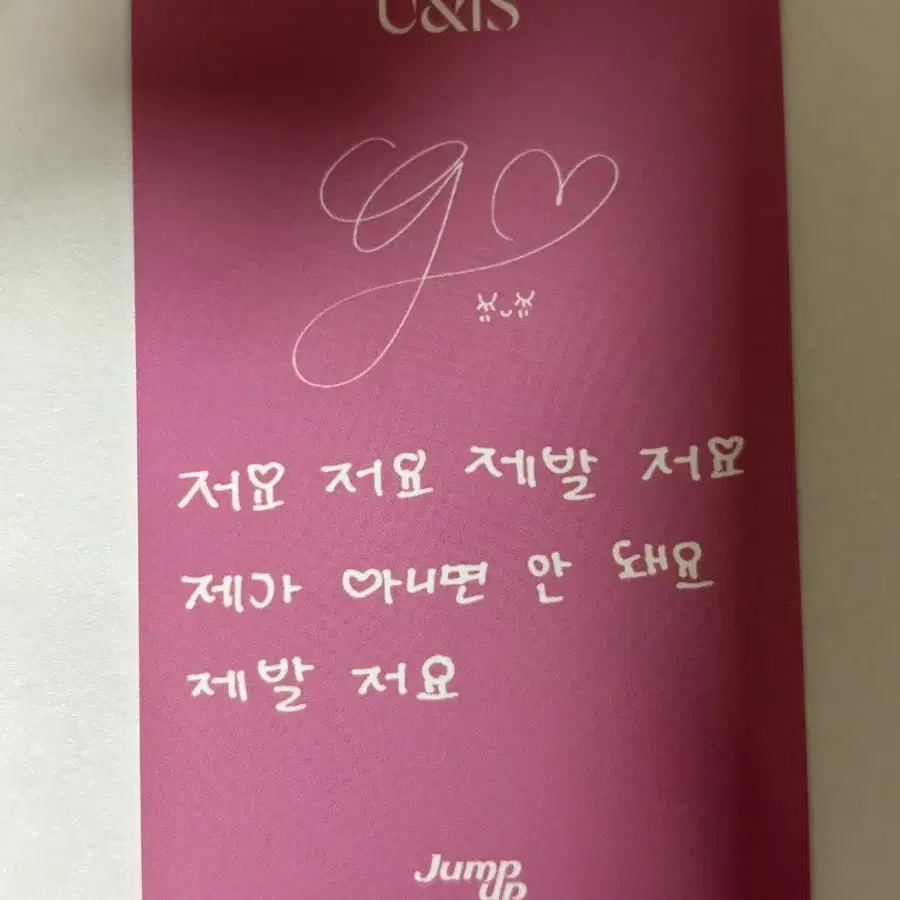 U&iS
저요 저요 제발 저요
제가 아니면 안 돼요
제발 저요
Jump
UP